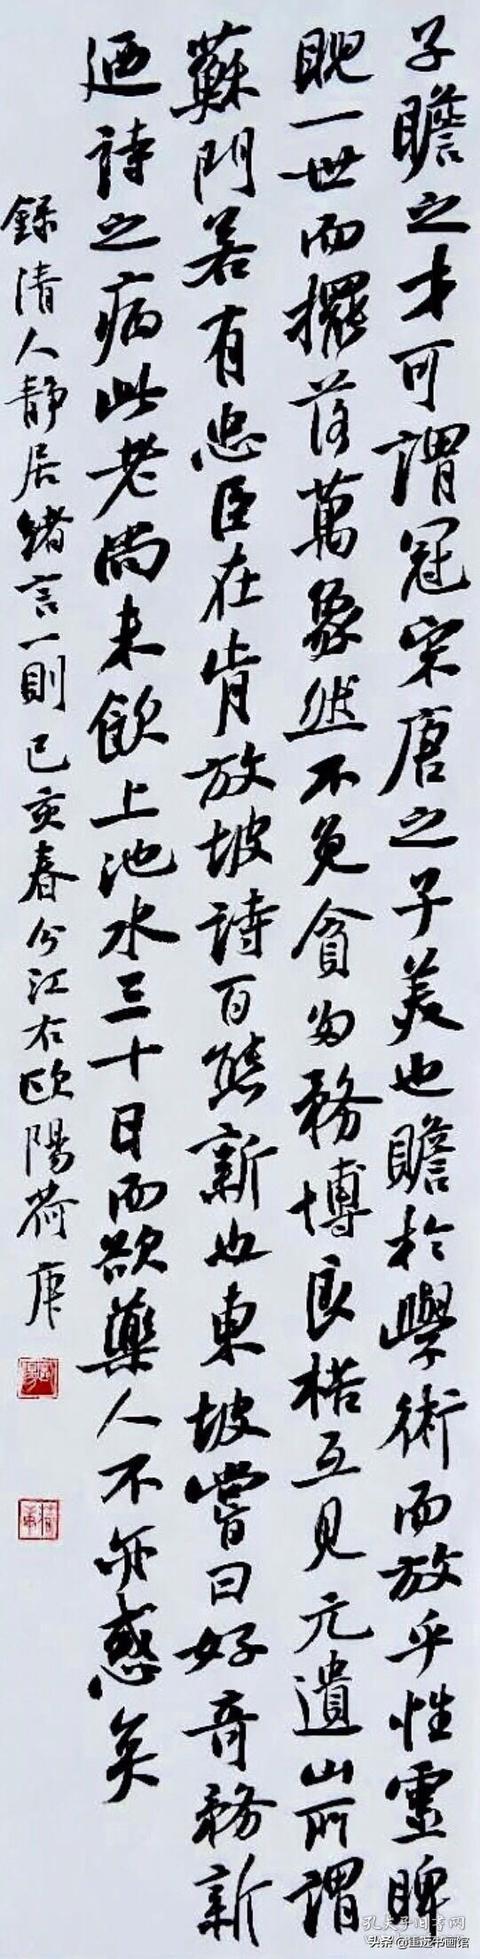 子瞻之才可謂冠宋唐之子美也瞻於學術而放乎性靈睥
睨一世而擺落萬象然不免貪多務博良楛互見元遺山所謂
蘇門若有忠臣在肯放坡詩百態新也東坡嘗曰好奇務新
迺詩之病此老尚未飲上池水三十日而欲藥人不亦惑矣
錄清人靜居緒言一則己亥春分江右歐陽荷庚
孔夫子旧书网
头条@重远书画馆